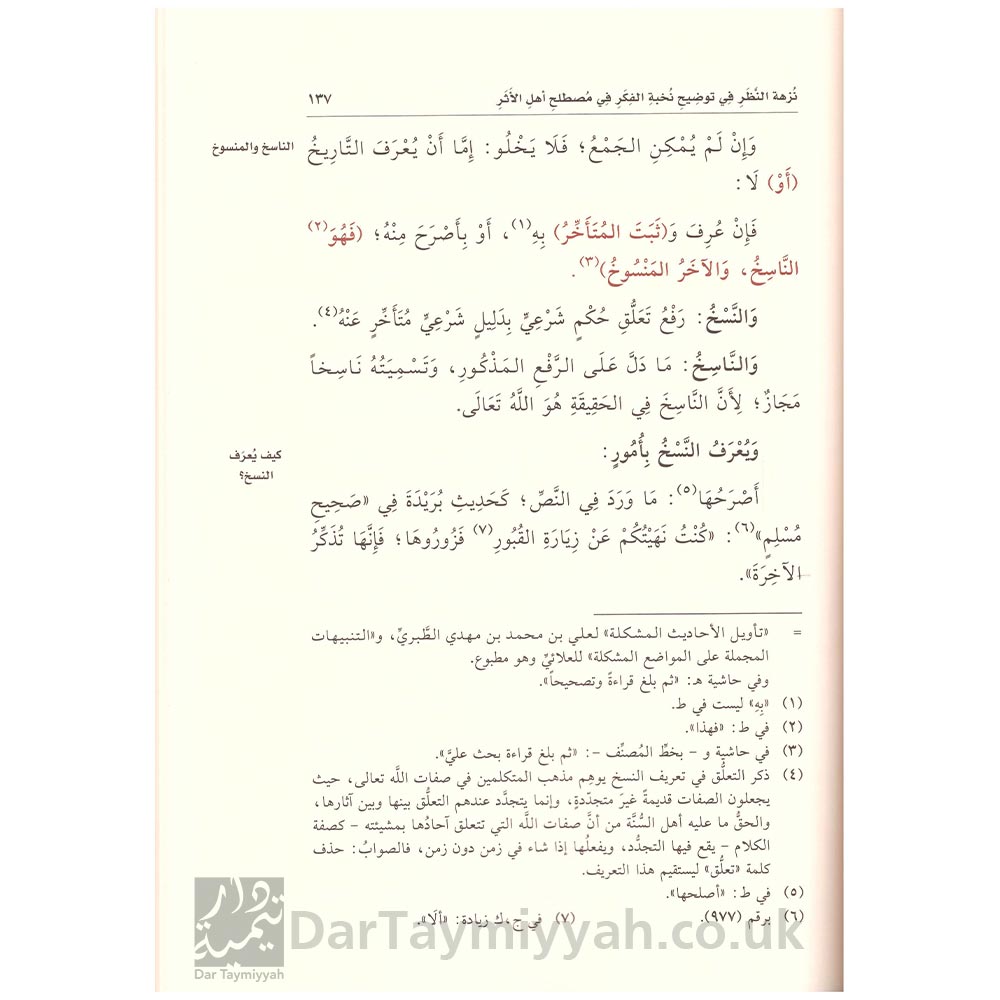 نُزهة النَّظَرِ فِي توضيحِ نُخبةِ الفِكَرِ فِي مُصطلحِ أهلِ الأَثَرِ ١٣٧
وَإِنْ لَمْ يُمْكِنِ الجَمْعُ؛ فَلَا يَخْلُو: إِمَّا أَنْ يُعْرَفَ التَّارِيخُ
الناسخ والمنسوخ
(أَوْ) لَا:
فَإِنْ عُرِفَ وَ(ثَبَتَ المُتَأَخِّرُ) بِهِ(١)، أَوْ بِأَصْرَحَ مِنْهُ؛ (فَهُوَ(٢)
النَّاسِخُ، وَالآخَرُ المَنْسُوخُ)(٣).
وَالنَّسْخُ: رَفْعُ تَعَلُّقِ حُكْمٍ شَرْعِيٍّ بِدَلِيلٍ شَرْعِيٍّ مُتَأَخِّرٍ عَنْهُ(٤).
وَالنَّاسِخُ: مَا دَلَّ عَلَى الرَّفْعِ المَذْكُورِ، وَتَسْمِيَتُهُ نَاسِخاً
مَجَازٌ؛ لِأَنَّ النَّاسِخَ فِي الحَقِيقَةِ هُوَ اللَّهُ تَعَالَى.
وَيُعْرَفُ النَّسْخُ بِأُمُورٍ:
كيف يُعرَف
النسخ؟
أَصْرَحُهَا(٥): مَا وَرَدَ فِي النَّصِّ؛ كَحَدِيثِ بُرَيْدَةَ فِي «صَحِيحِ
مُسْلِمٍ»(٦): «كُنْتُ نَهَيْتُكُمْ عَنْ زِيَارَةِ القُبُورِ(٧) فَزُورُوهَا؛ فَإِنَّهَا تُذَكِّرُ
الآخِرَةَ».
= «تأويل الأحاديث المشكلة» لعلي بن محمد بن مهدي الطَّبريِّ، و«التنبيهات
المجملة على المواضع المشكلة» للعلائيِّ وهو مطبوع.
وفي حاشية هـ: «ثم بلغ قراءةً وتصحيحاً».
(١) «بِهِ» ليست في ط.
(٢) في ط: «فهذا».
(٣) في حاشية و - بخطِّ المُصنِّف -: «ثم بلغ قراءة بحث عليَّ».
(٤) ذكر التعلُّق في تعريف النسخ يوهِم مذهب المتكلمين في صفات اللَّه تعالى، حيث
يجعلون الصفات قديمةً غيرَ متجدِّدةٍ، وإنما يتجدَّد عندهم التعلُّق بينها وبين آثارها،
والحقُّ ما عليه أهل السُّنَّة من أنَّ صفات اللَّه التي تتعلق آحادُها بمشيئته - كصفة
الكلام - يقع فيها التجدُّد، ويفعلُها إذا شاء في زمن دون زمن، فالصوابُ: حذف
كلمة «تعلُّق» ليستقيم هذا التعريف.
(٥) في ط: «أصلحها».
(٦) برقم (٩٧٧). (٧) في ج، ك زيادة: «ألَا».
دار تيمية
Dar Taymiyyah
DarTaymiyyah.co.uk